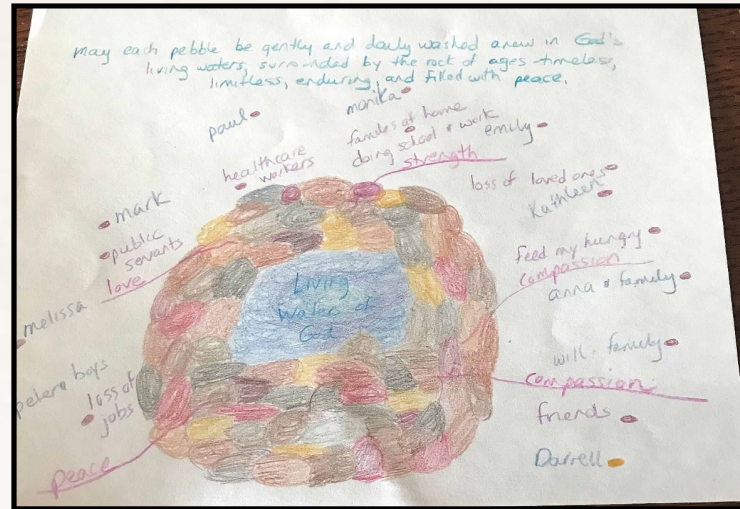 may each pebble be gently and daily washed anew in God's
living waters, surrounded by the rock of ages - timeless,
limitless, enduring, and filled with peace.
monika
paul
families at home
doing school & work
emily
strength
healthcare
workers
loss of loved ones
Kathleen
mark
public
servants
love
feed my hungry
compassion
anna & family
Living
Water of
God
melissa
will family
compassion
boys
loss of
jobs
friends
peace
Darrell